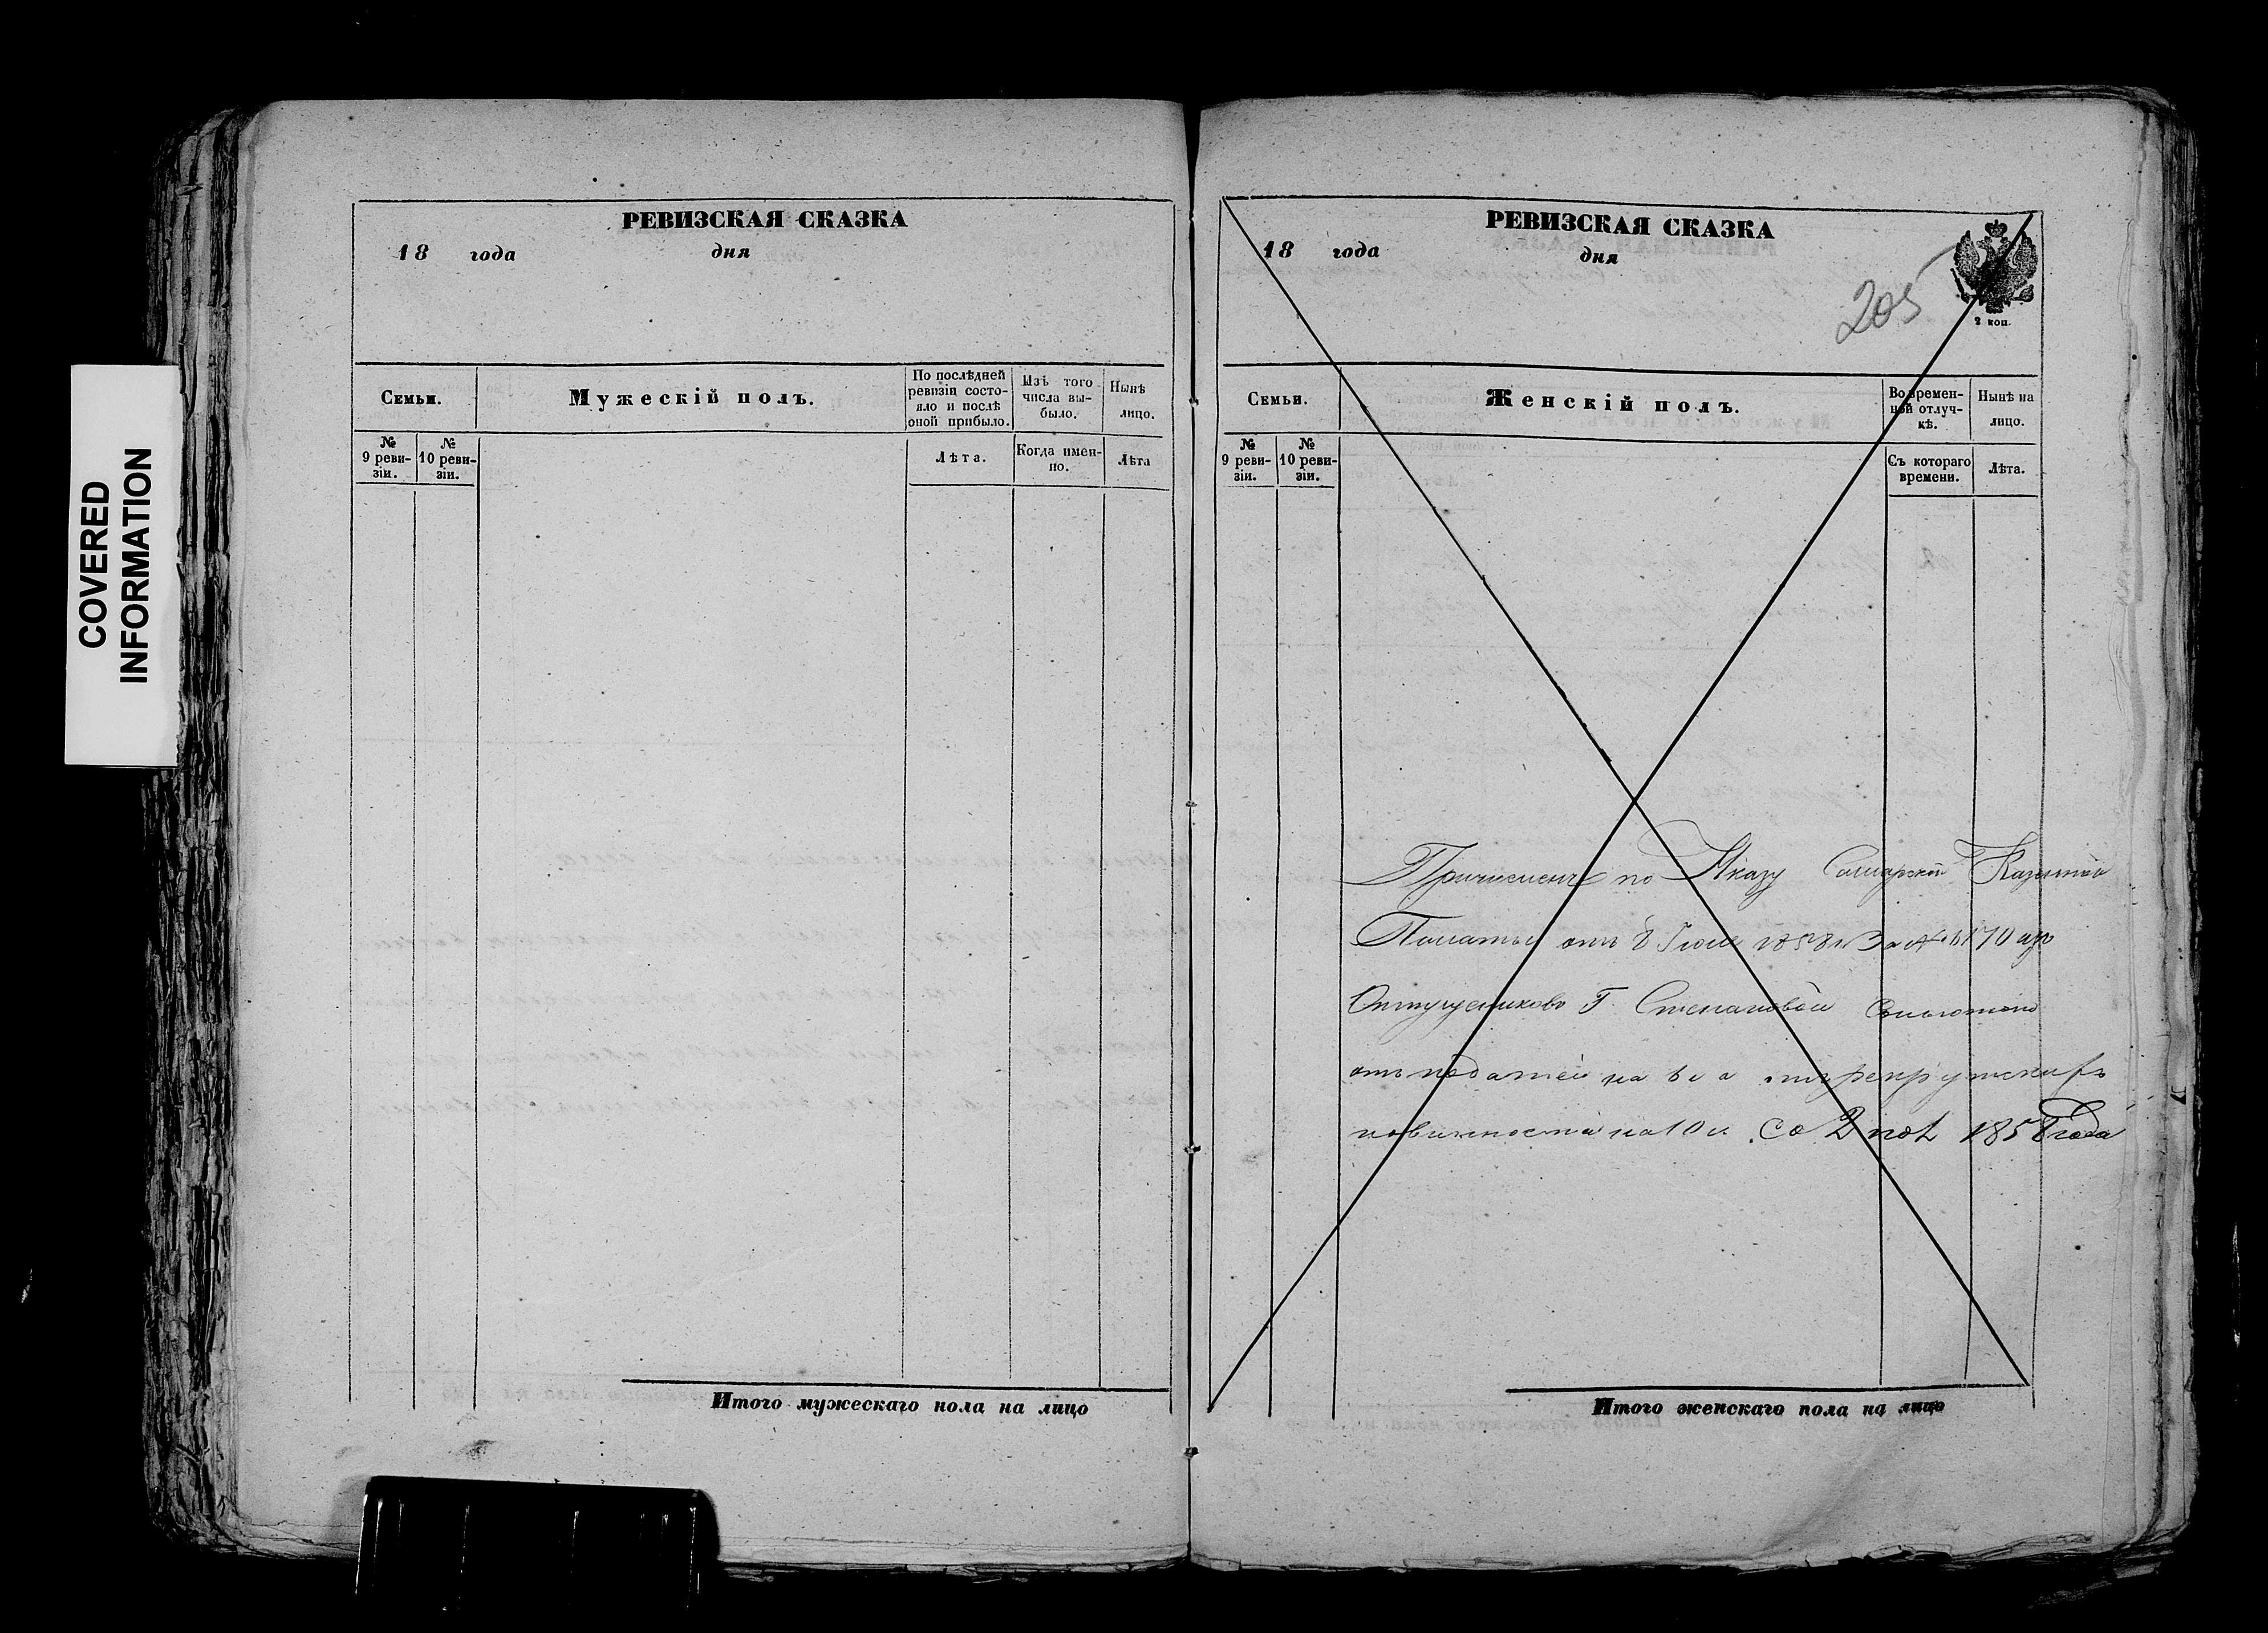 COVERED
INFORMATION
РЕВИЗСКАЯ СКАЗКА
18 года дня
Семьи.
Мужескій полъ.
По послѣдней
ревизіи состо-
яло и послѣ
оной прибыло.
Изъ того
числа вы-
было.
Нынѣ
лицо.
№
9 реви-
зіи.
№
10 реви-
зіи.
Лѣта.
Когда имен-
но.
Лѣта
Итого мужескаго пола на лицо
РЕВИЗСКАЯ СКАЗКА
18 года дня
205
2 коп.
Семьи.
Женскій полъ.
Во времен-
ной отлуч-
кѣ.
Нынѣ на
лицо.
№
9 реви-
зіи.
№
10 реви-
зіи.
Съ котораго
времени.
Лѣта.
Причисленъ по Указу Самарской Казенной
Палаты отъ 8 1858 За №
Г. Степановой
отъ податей на
повинности на 10 Со 2 пол 1858 года
Итого женскаго пола на лицо